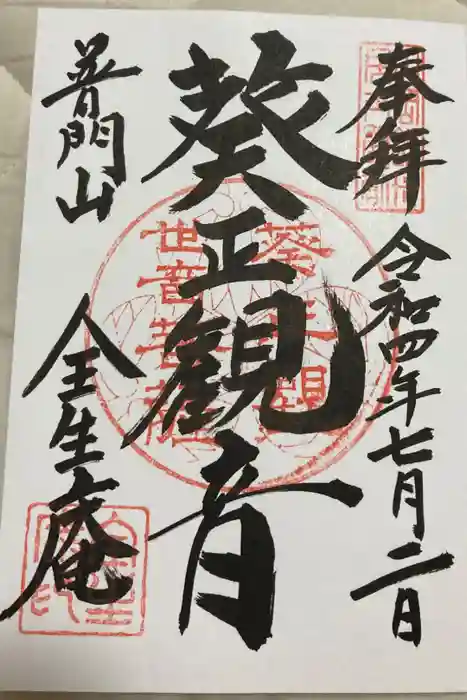 奉拝
令和四年七月二日
葵正観音
葵正観
世音菩薩
普門山
全生庵